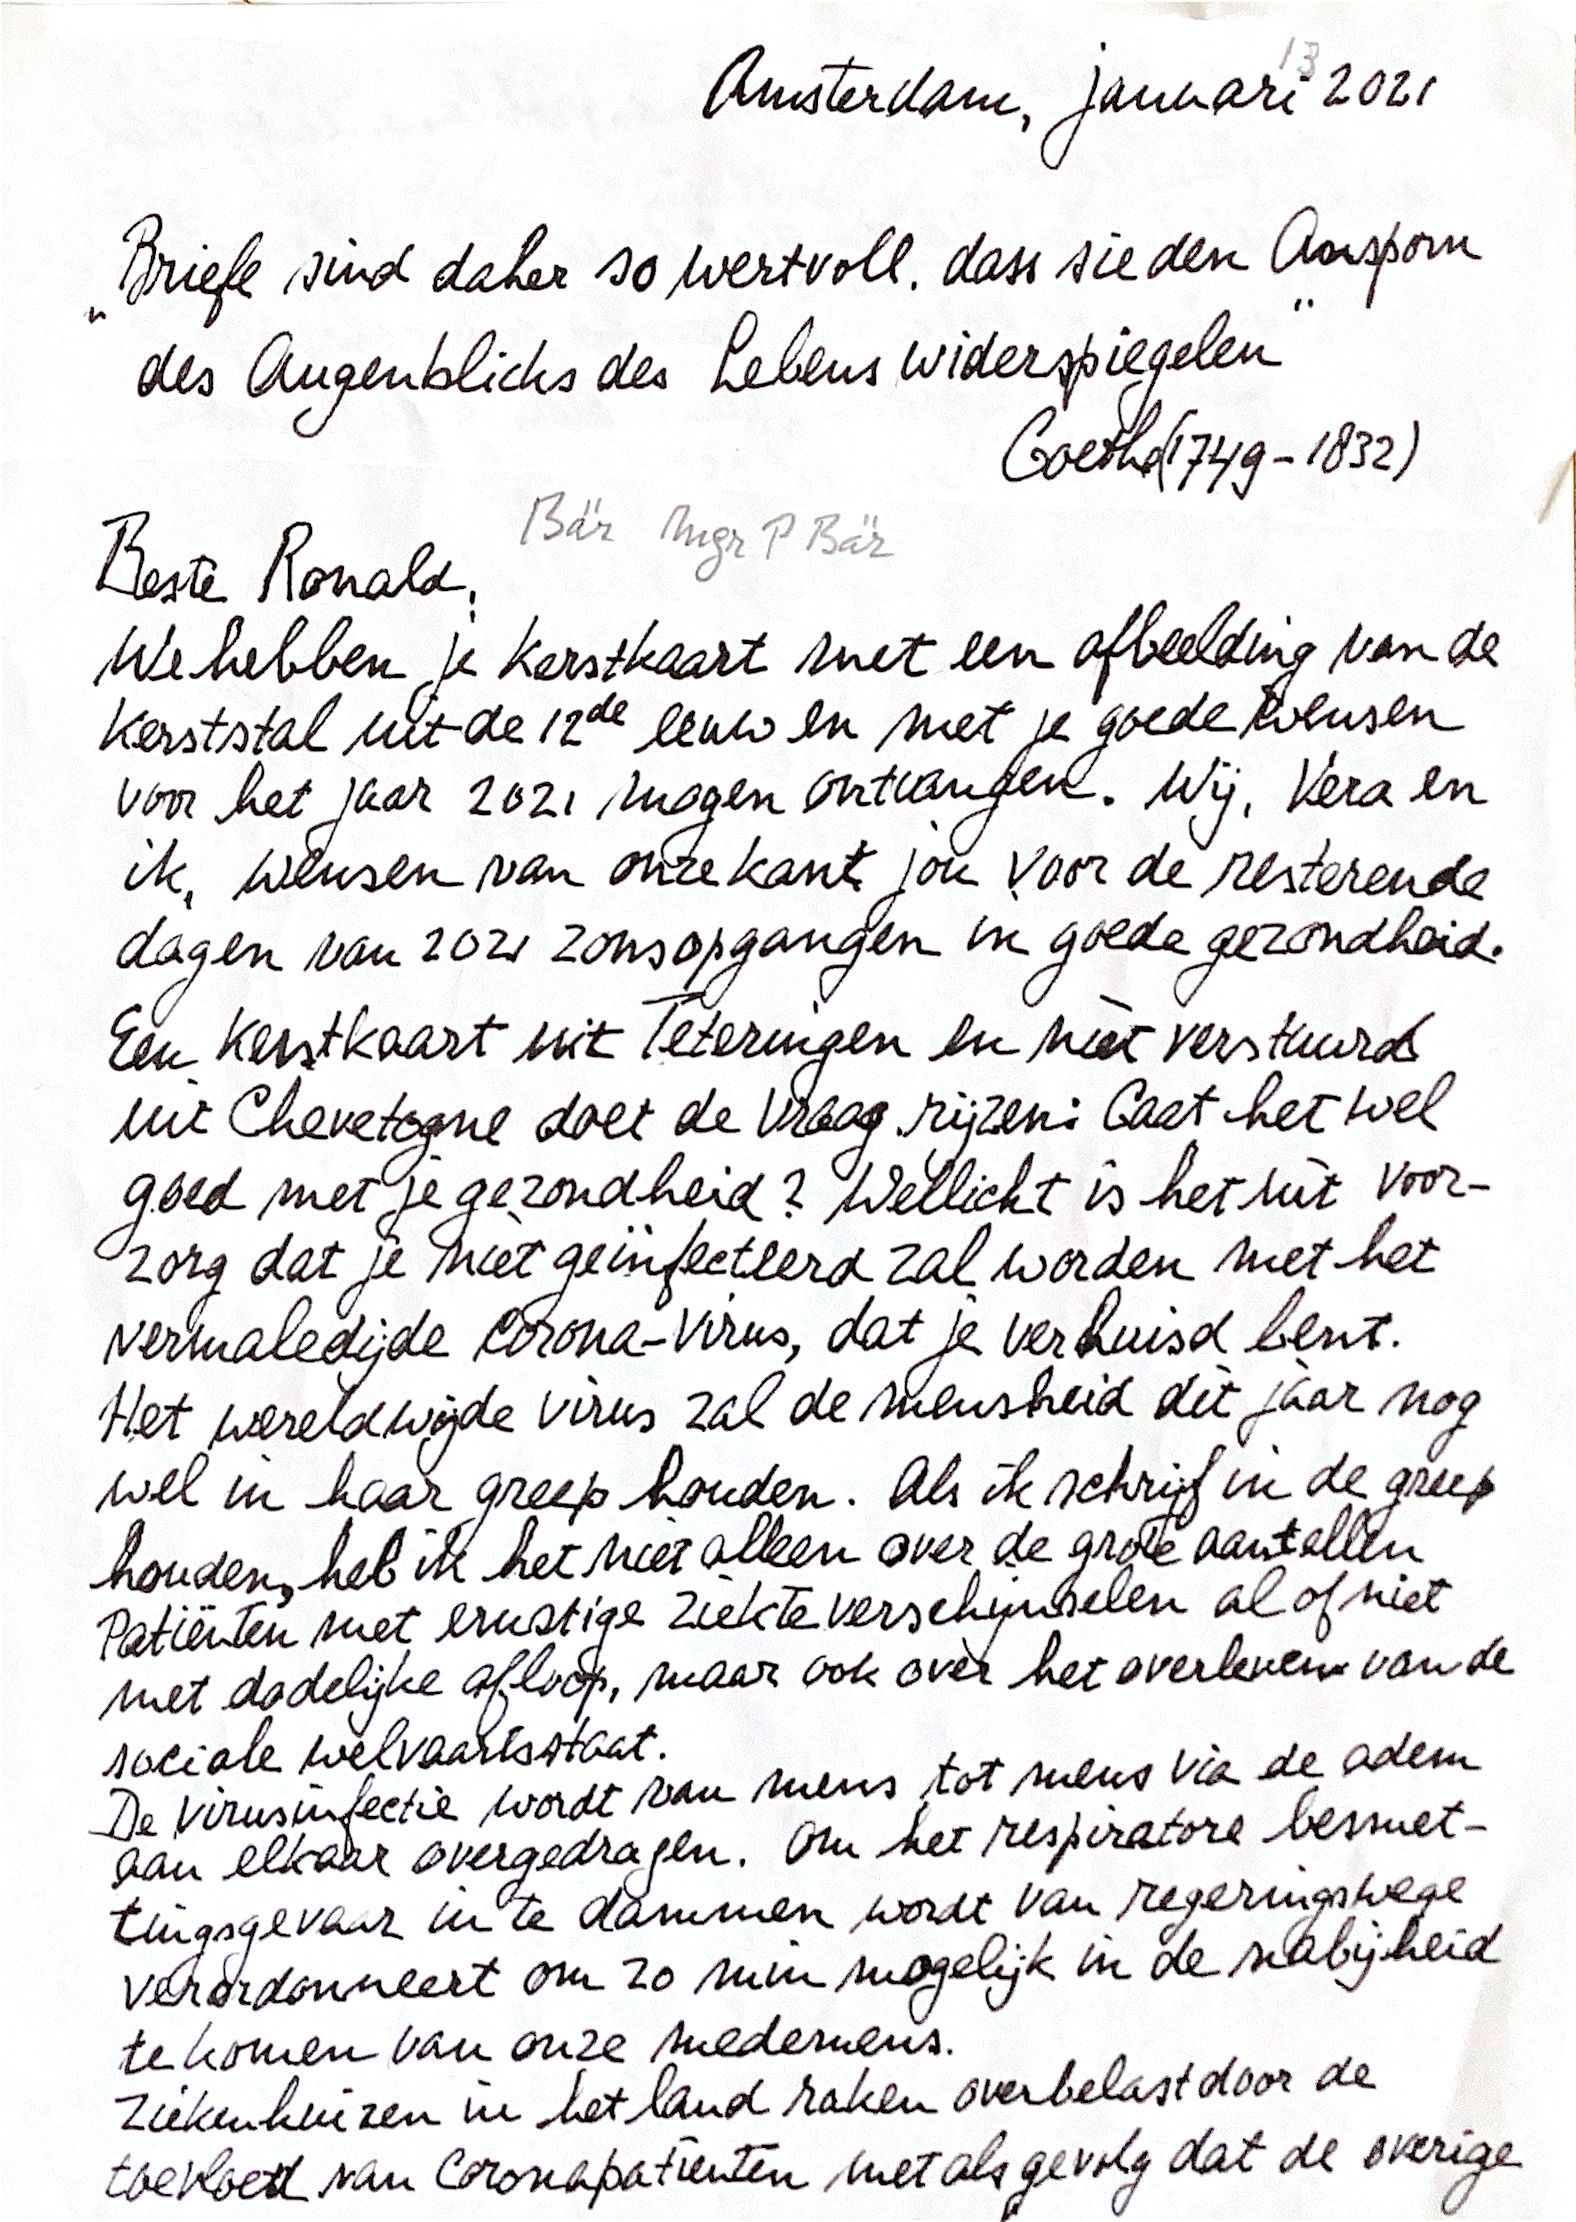 13
Amsterdam, januari 2021
„Briefe sind daher so wertvoll. dass sie den Ansporn
des Augenblicks des Lebens widerspiegelen"
Goethe (1749-1832)
Bär Mgr P Bär
Beste Ronald,
We hebben je kerstkaart met een afbeelding van de
kerststal uit de 12de eeuw en met je goede wensen
voor het jaar 2021 mogen ontvangen. Wij, Vera en
ik, wensen van onze kant jou voor de resterende
dagen van 2021 zonsopgangen in goede gezondheid.
Een kerstkaart uit Teteringen en niet verstuurd
uit Chevetogne doet de vraag rijzen: Gaat het wel
goed met je gezondheid? Wellicht is het uit voor-
zorg dat je niet geïnfecteerd zal worden met het
vermaledijde corona-virus, dat je verhuisd bent.
Het wereldwijde virus zal de mensheid dit jaar nog
wel in haar greep houden. Als ik schrijf in de greep
houden, heb ik het niet alleen over de grote aantallen
Patiënten met ernstige ziekteverschijnselen al of niet
met dodelijke afloop, maar ook over het overleven van de
sociale welvaartsstaat.
De virusinfectie wordt van mens tot mens via de adem
aan elkaar overgedragen. Om het respiratore besmet-
tingsgevaar in te dammen wordt van regeringswege
verordonneert om zo min mogelijk in de nabijheid
te komen van onze medemens.
Ziekenhuizen in het land raken overbelast door de
toevloed van Coronapatiënten met als gevolg dat de overige